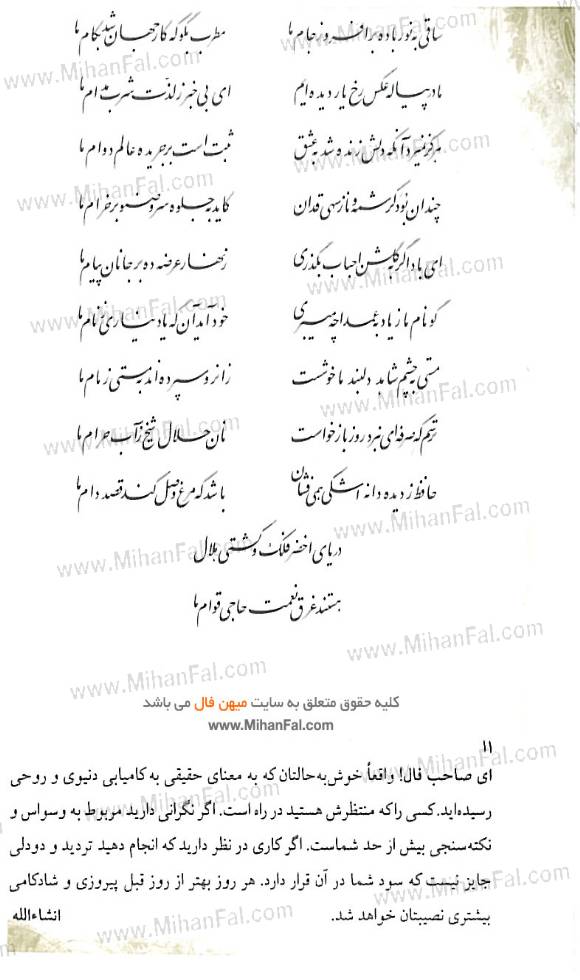 ساقی به نور باده برافروز جام ما    مطرب بگو که کار جهان شد بکام ما
ما در پیاله عکس رخ یار دیده ایم    ای بی خبر ز لذت شرب مدام ما
هرگز نمیرد آنکه دلش زنده شد به عشق    ثبت است بر جریده عالم دوام ما
چندان بود کرشمه و ناز سهی قدان    کاید به جلوه سرو صنوبر خرام ما
ای باد اگر به گلشن احباب بگذری    زنهار عرضه ده بر جانان پیام ما
گو نام ما ز یاد به عمدا چه میبری    خود آید آن که یاد نیاری ز نام ما
مستی به چشم شاهد دلبند ما خوشست    زانرو سپرده اند به مستی زمام ما
ترسم که صرفه ای نبرد روز بازخواست    نان حلال شیخ ز آب حرام ما
حافظ ز دیده دانه اشکی همی فشان    باشد که مرغ وصل کند قصد دام ما
دریای اخضر فلک و کشتی هلال
هستند غرق نعمت حاجی قوام ما
کلیه حقوق متعلق به سایت میهن فال می باشد
www.MihanFal.com
۱۱
ای صاحب فال! واقعاً خوش‌به‌حالتان که به معنای حقیقی به کامیابی دنیوی و روحی
رسیده‌اید.کسی راکه منتظرش هستید در راه است. اگر نگرانی دارید مربوط به وسواس و
نکته‌سنجی بیش از حد شماست. اگر کاری در نظر دارید که انجام دهید تردید و دودلی
جایز نیست که سود شما در آن قرار دارد. هر روز بهتر از روز قبل پیروزی و شادکامی
بیشتری نصیبتان خواهد شد.    انشاءالله